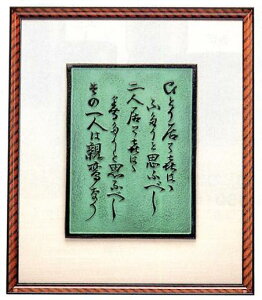 ひとり居て喜ばゝ
ふたりと思ふべし
二人居て喜ばゝ
三人と思ふべし
その一人は親鸞なり